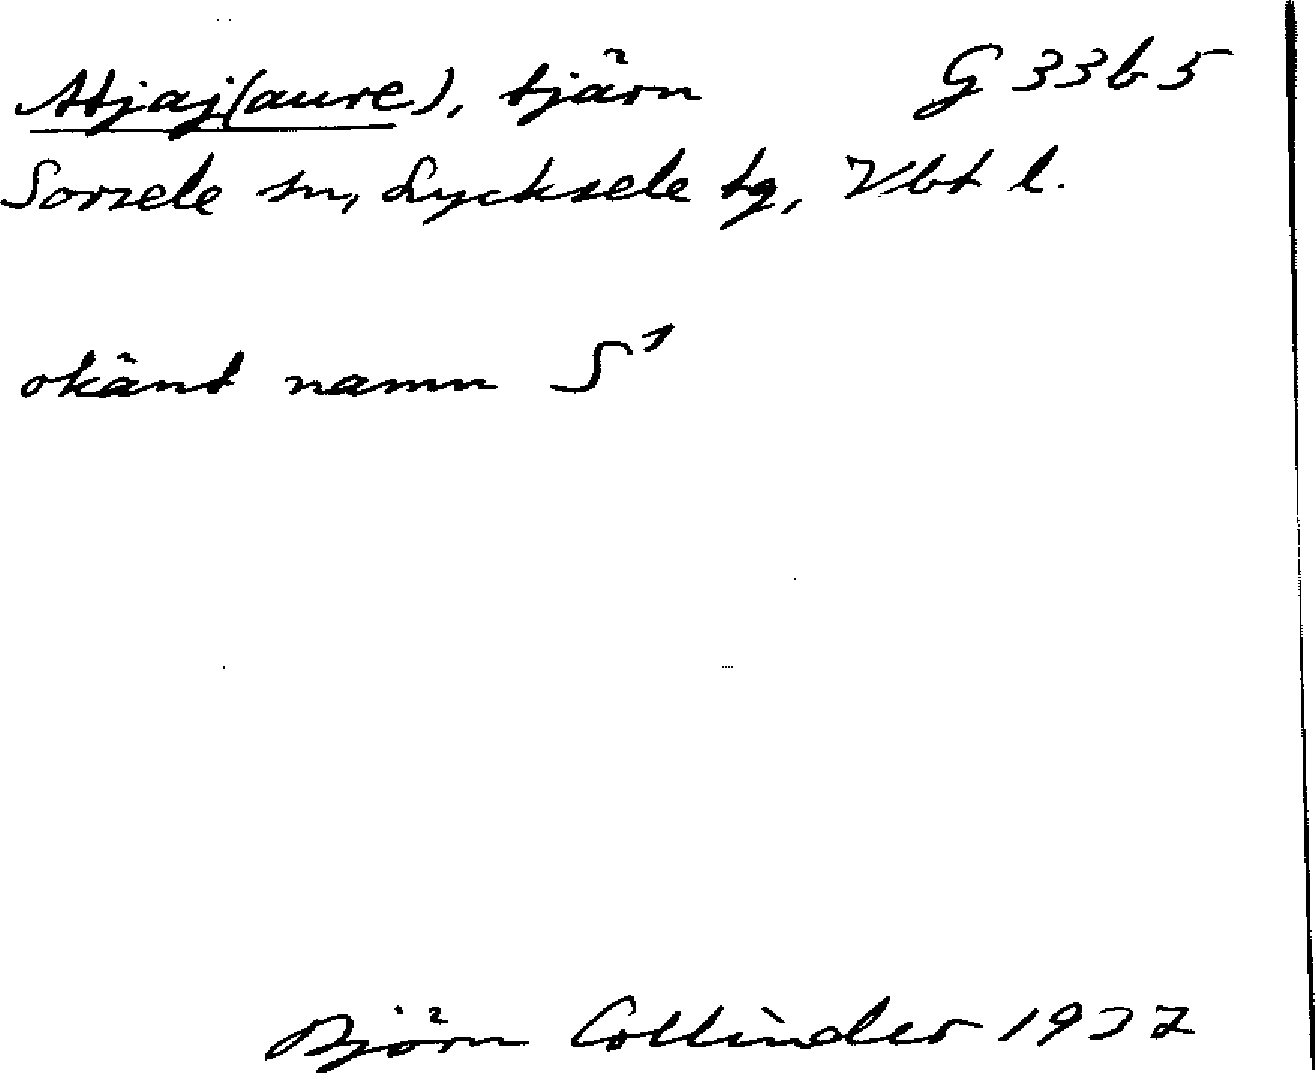 Atjaj(aure), tjärn G 33 b 5
Sorsele sn, Lycksele tg, Vbt l.
okänt namn S¹
Björn Collinder 1937